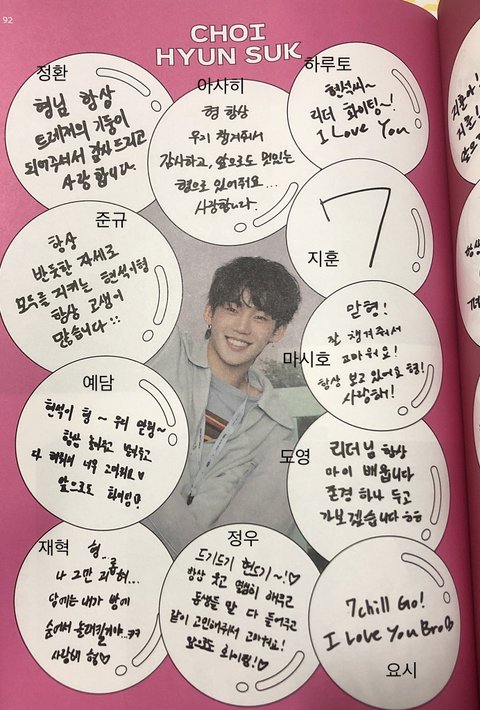 92
CHOI
HYUN SUK
정환
형님 항상
트레저의 기둥이
되어주셔서 감사드리고
사랑합니다.
아사히
형 항상
우리 챙겨주셔서
감사하고, 앞으로도 멋있는
형으로 있어줘요...
사랑합니다.
하루토
현석씨~
리더 화이팅~!
I Love You
준규
항상
반듯한 자세로
모두를 지키는 현석이형
항상 고생이
많습니다
지훈
7
마시호
맏형!
잘 챙겨줘서
고마워요!
항상 보고 있어요 형!
사랑해!
예담
현석이 형~ 우리 맏형~
항상
다 해줘서 너무 고마워요♡
앞으로도 화이팅
도영
리더님 항상
마이 배웁니다
존경 하나 두고
가보겠습니다 ㅎㅎ
재혁
형..
나 그만
담에는 내가 방에
숨어서 놀래킬거야..ㅋㅋ
사랑해 형♡
정우
드기드기 현드기~!♡
항상 웃고 열심히 해주고
동생들 말 다 들어주고
같이 고민해줘서 고마워요!
앞으로도 화이팅!♡
7chill Go!
I Love You Bro♡
요시